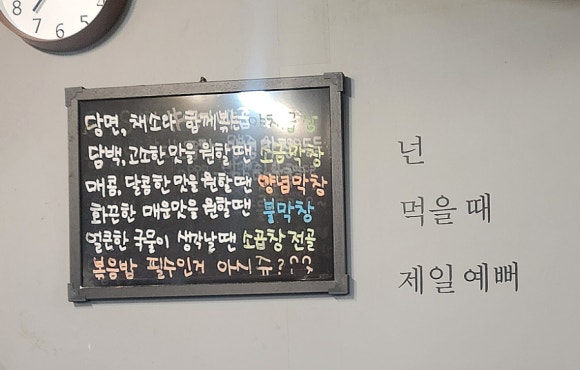 8 7 6 5 4
당면, 채소와 함께볶는곱 야채곱창
담백, 고소한 맛을 원할땐 소곱막창
매콤, 달콤한 맛을 원할땐 양념막창
화끈한 매운맛을 원할땐 불막창
얼큰한 국물이 생각날땐 소곱창 전골
볶음밥 필수인거 아시쥬???
넌
먹을 때
제일 예뻐